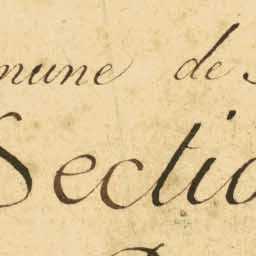 mune de
Sectio